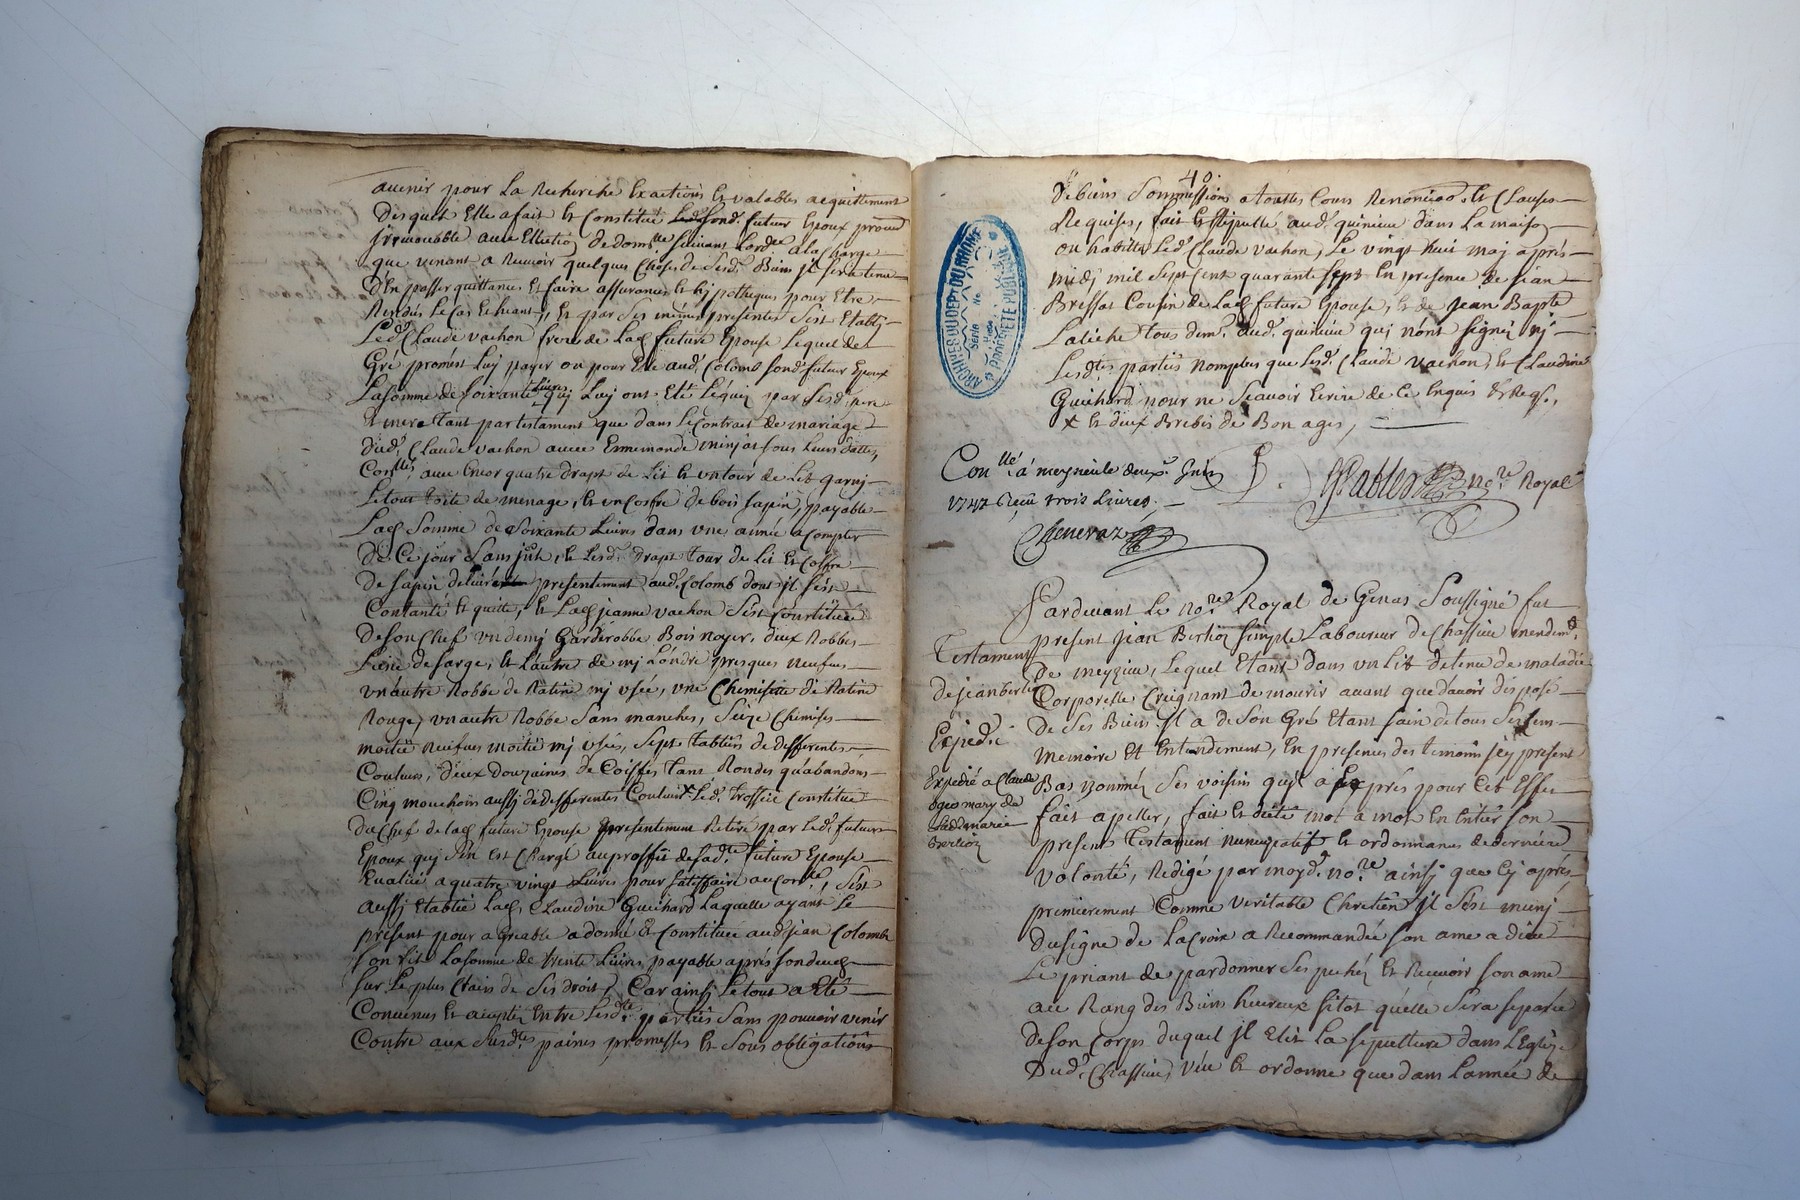 avenir pour la Recherche Exactions et valables acquittement
Desquels Elle a fait et Constitué led. fond. futur Epoux procur
jrrevocable avec Ellection de domlle suivant L'ordre a la Charge
que venant a Recevoir quelques Choses de sesd. Biens jl sera tenu
d'En passer quittances et faire assurances et hypotheques pour Etre
Rendus le Cas Echeant, et par Ses mêmes presentes s'est Etablj
Led. Claude vachon frere de lad. future Epouse lequel de
Gré promest Luy payer ou pour Elle aud. Colomb sond. futur Epoux
La somme de soixante Livres qui Luj ont Eté Légués par sesd. pere
Et mere tant par testament que dans le Contrat de mariage
Dud. Claude vachon avec Ermemonde minjat sous Leurs dattes,
avec Encor quatre draps de Lit et un tour de Lit garnj
Le tout toile de menage, et un Coffre de bois sapin, payable
Lad. Somme de Soixante Livres dans une année a Compter
De Ce jour Sans jnt. et Lesd. Draps tour de Lit et Coffre
De Sapin delivré presentement aud. Colomb dont jl s'est
Contanté et quitte, et Lad. jeanne vachon s'est Constituée
De son Chef un demj Garderobbe Bois noyer, deux Robbes
L'une de sarge, et L'autre de mj Londre presques neufves
un autre Robbe de Ratine mj usée, une Chemisette de Ratine
Rouge, un autre Robbe Sans manches, Seize Chemises
moitié neufves moitié mj usées, Sept tabliers de differentes
Couleurs, deux douzaines de Coiffes tant Rondes qu'abandons
Cinq mouchoirs aussj de differentes Couleurs Led. trossel Constitué
Du Chef de lad. future Epouse presentement Retiré par Led. futur
Epoux quj s'en est Chargé au proffit de sad. future Epouse
Evalué a quatre vingt Livres pour satisffaire s'est
aussj Etablie lad. Claudine Guichard Laquelle ayant Le
present pour agreable a donné et Constitué aud. jean Colomb
son fils La somme de trente Livres payable aprés son deces
sur le plus Clair de Ses droits, Car ainsj Le tout a Eté
Convenus et acceptés Entre Lesd. parties Sans pouvoir venir
Contre aux susdtes paines promesses et Sous obligations
40.
De biens Sommissions a toutes Cours Renonciaons et Clauses
Requises, fait et stipullé aud. quinieu dans La maison
ou habitte Led. Claude vachon, Le vingt huit maj aprés
midj mil sept Cent quarante sept En presence de jean
Bressat Cousin de Lad. future Epouse, et de Jean Bapte
Latiche tous dem. aud. quinieu quj n'ont signé nj
Lesdtes parties non plus que Lesd. Claude vachon, et Claudine
Guichard pour ne Scavoir Ecrire de Ce Enquis et Reqs.
x et deux Brebis de Bon ages,
Conllé a meyzieule deux
1747 Reçu trois Livres
nore Royal
Cheneraz
Pardevant Le nore Royal de Genas Soussigné fut
present jean Berlioz simple Laboureur de Chassieu mendemt
de meyzieu, Lequel Etant dans un Lit detenu de maladie
Corporelle Creignant de mourir avant que d'avoir disposé
De Ses Biens jl a de Son Gré Etant sain de tous Ses sem
Memoire Et Entendement, En presences des temoins jcy present
Bas nommés Ses voisins qu'il a Exprés pour Cet Effet
fait apeller, fait et dicté mot a mot En Entier son
present Testament nuncupatif et ordonnance de derniere
volonté, Redigé par moyd. nore ainsj que Cy aprés
premierement Comme veritable Chretien jl s'est munj
Du signe de La Croix a Recommandée son ame a dieu
Le priant de pardonner Ses pechés Et Recevoir son ame
au Rang des Biens heureux sitot qu'elle Sera separée
de son Corps duquel jl Elit La sepulture dans L'Eglise
Dud. Chassieu, veut et ordonne que dans L'année de
Testament
de jean Berlioz
Expedié
Expedié a Claude
ogeo mary de
lad. marie
Berlioz
ARCHIVES DU DEPT DU RHONE
Serie
No
PROPRIETE PUBLIQUE